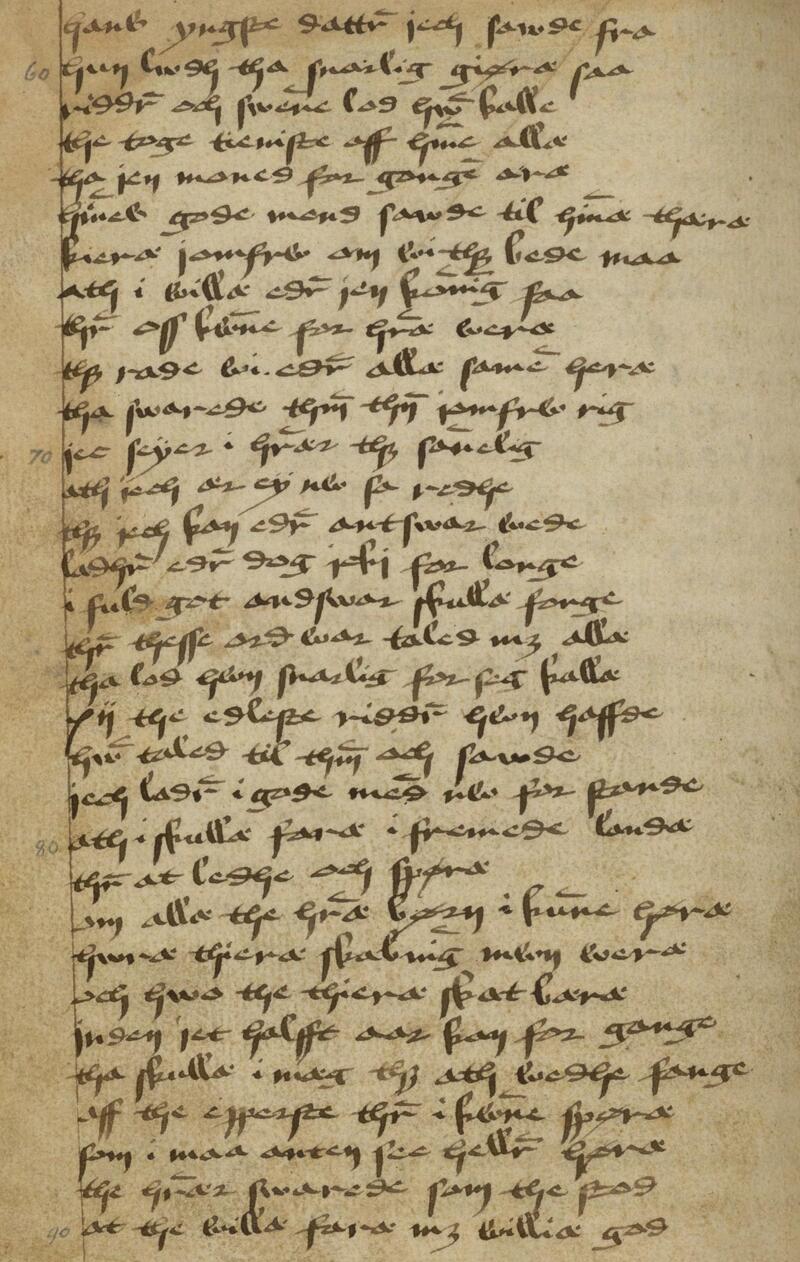 hans yngste dattr̄ jech sawde fra
60 hun lwdh tha snarlig giøræ saa
riddr̄ och swēne lod hwn̄ kalle
the toge tieniste aff hm̄e allæ
tha jen moned for gangē aræ
hm̄es gode mend sawde til hm̄æ thæræ
kieræ jomfrw om wi thꝫ bede maa
ath i willæ edr̄ jen kōnīg faa
thr̄ oss kwn̄e for hr̄æ weræ
thꝫ rade wi edr̄ allæ samē heræ
tha swarede thm̄ thn̄ jomfrw rig
70 jec seyer i hr̄ær thꝫ san̄elig
ath jech ær ey nw sa redhe
thꝫ jech kan edr̄ antswar wede
ladhr̄ edr̄ dog jcki for longe
i fuld got andswar skullæ fonge
thr̄ thesse ord war taled mꝫ allæ
tha lod hwn snarlig for seg kallæ
xij the edleste riddr̄ hwn haffde
hwn̄ taled til thm̄ och sawde
jech ladr̄ i gode mēd nw for stande
80 ath i skullæ faræ i fremede landæ
thr̄ at ledhe och spøræ
om allæ the hr̄æ børn i kun̄e høræ
hwræ thieræ skabnīg mwn weræ
och hwo the thieræ skat bæræ
jnden jet halfft aar kan for gange
tha skullæ i mæg thꝫ ath wedhe fange
aff the epperste thr̄ i kwn̄e spøræ
som i maa anten see hellr̄ høræ
the hr̄ær swarede som the stod
90 at the willæ faræ mꝫ williæ god